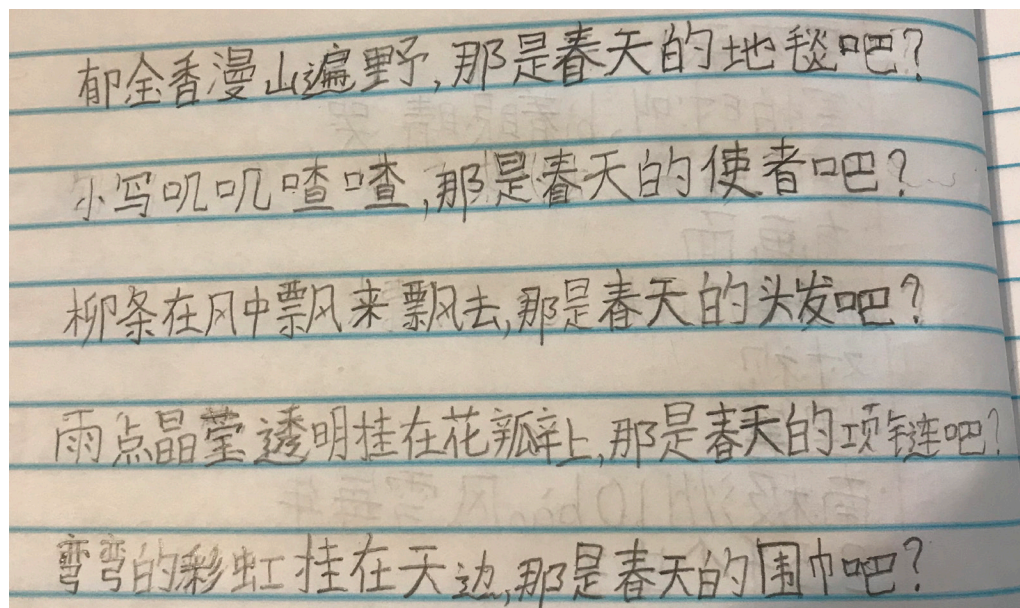 郁金香漫山遍野,那是春天的地毯吧?
小写叽叽喳喳,那是春天的使者吧?
柳条在风中飘来飘去,那是春天的头发吧?
雨点晶莹透明挂在花瓣上,那是春天的项链吧?
弯弯的彩虹挂在天边,那是春天的围巾吧?